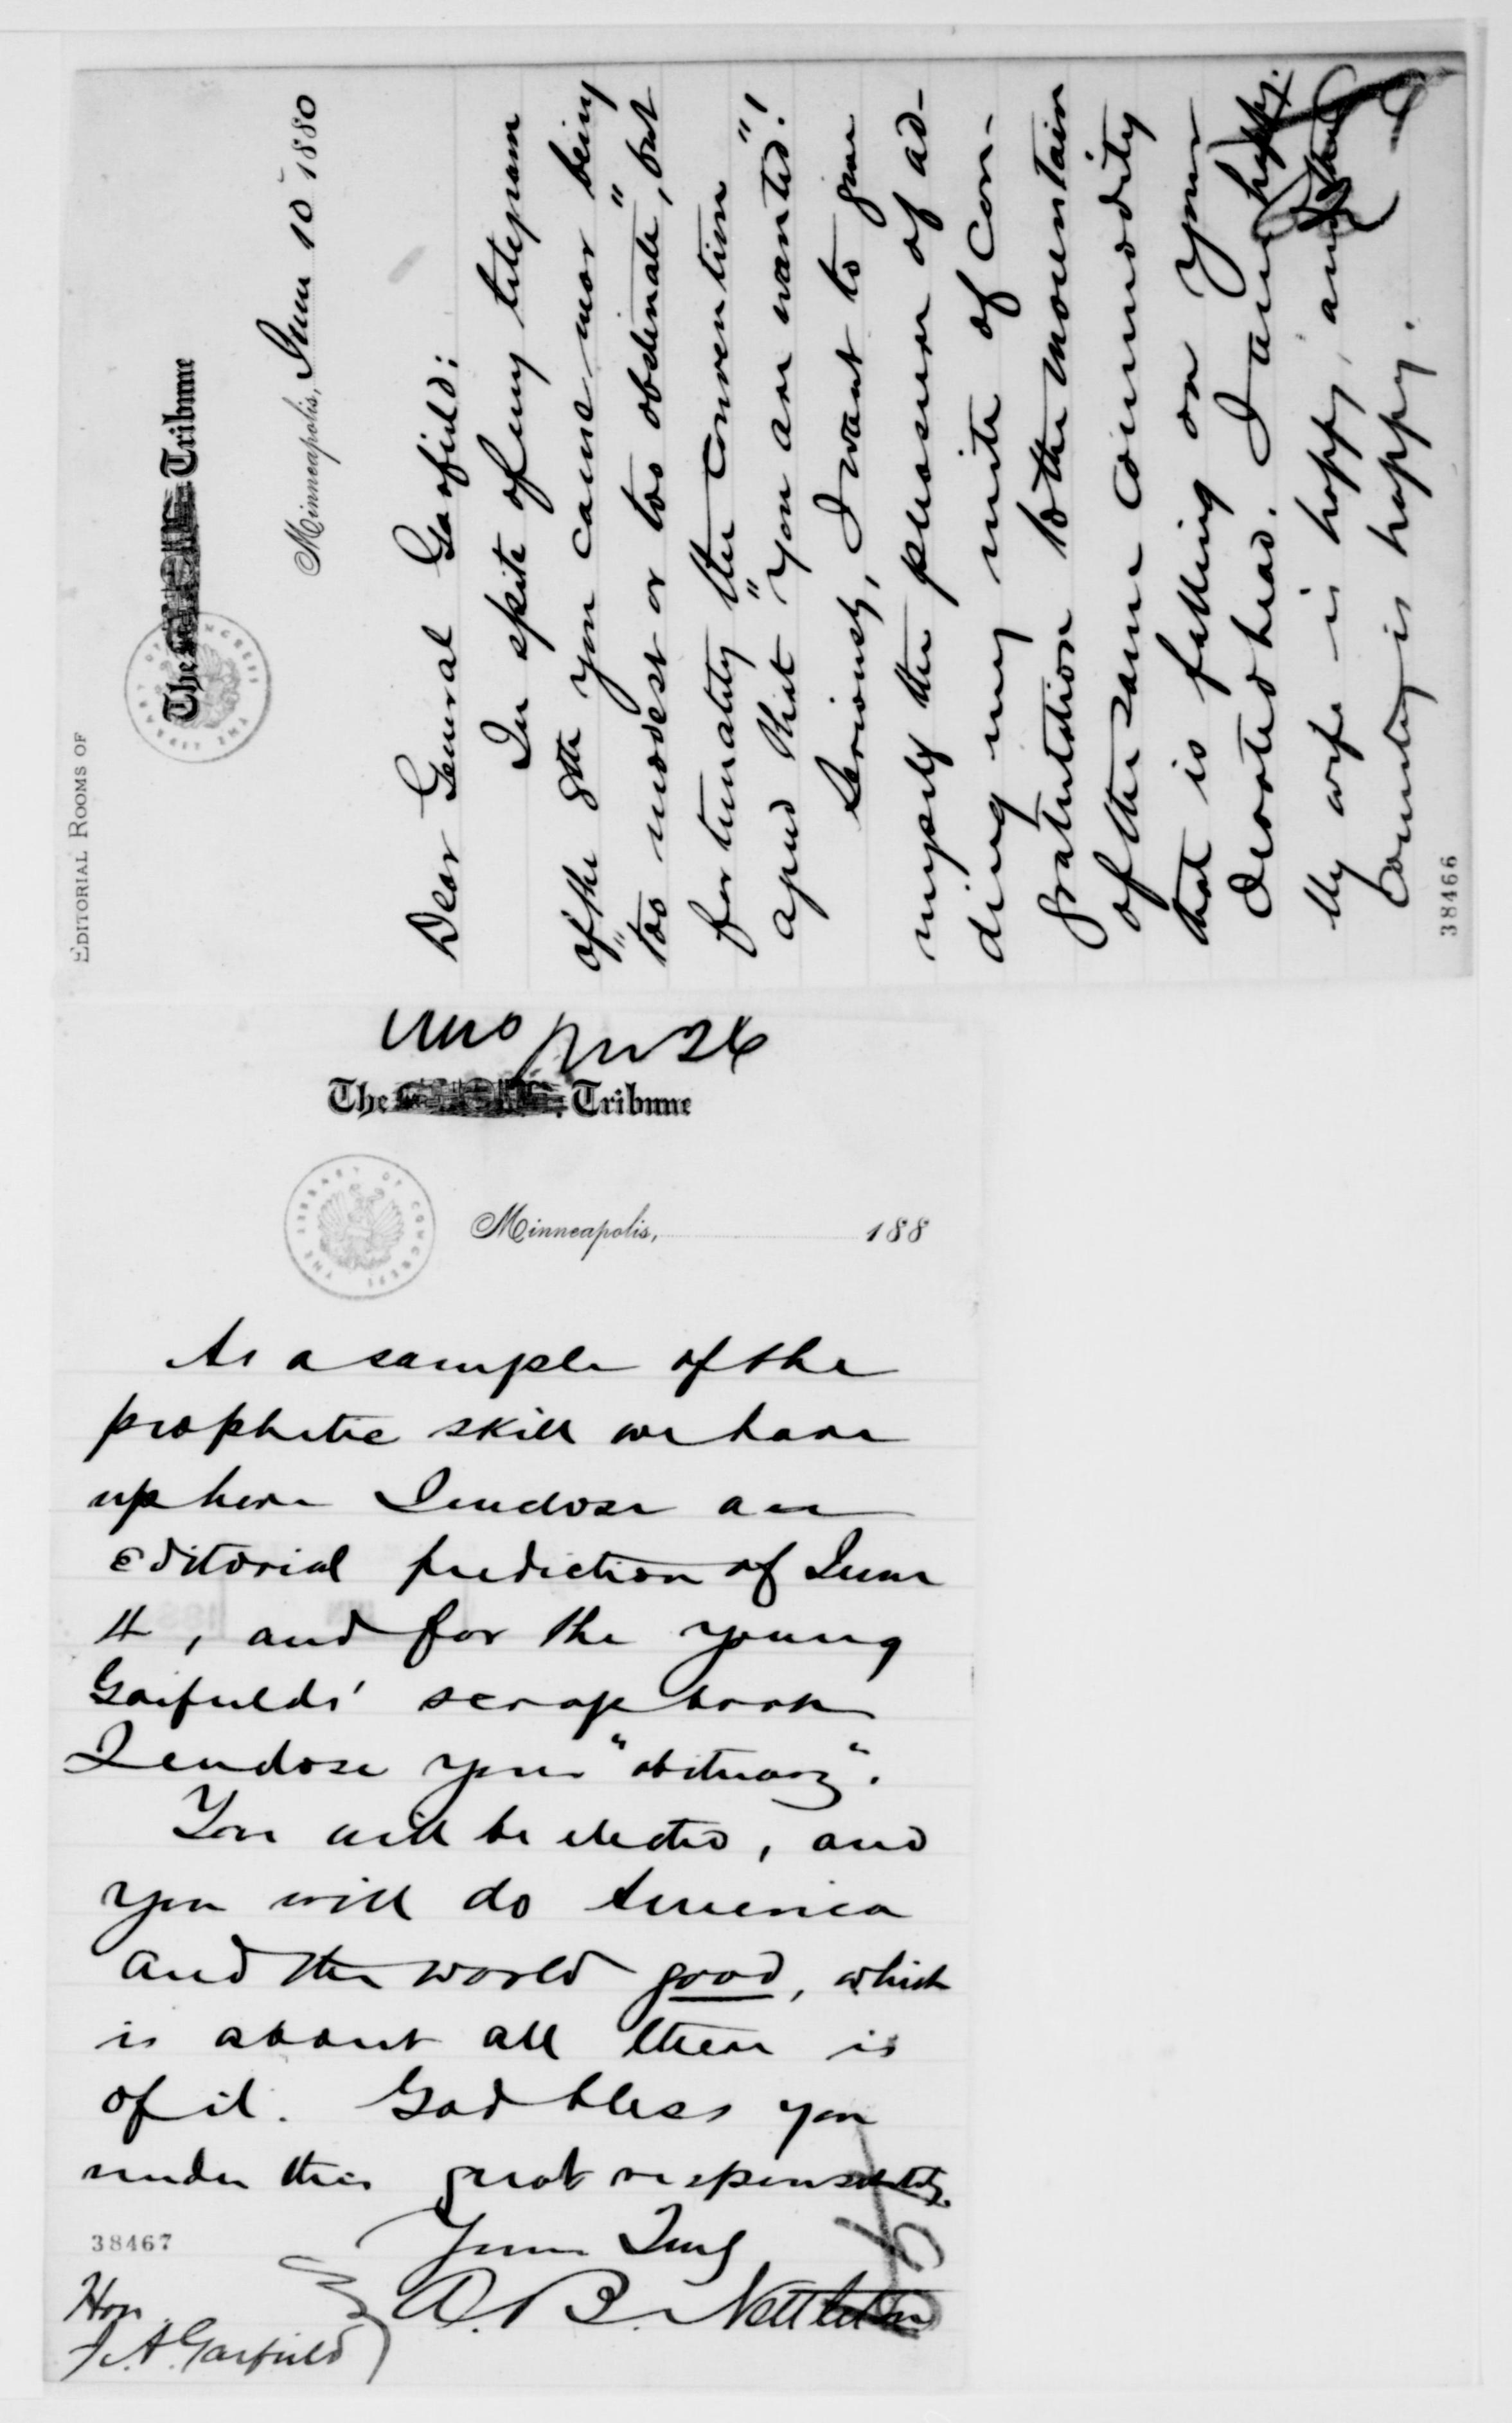 EDITORIAL ROOMS OF
The Tribune
Minneapolis, June 10 1880
Dear General Garfield:
In spite of my telegram
of the 8th you came near being
"too modest or too obstinate", but
fortunately "the convention
agreed that "you are wanted"!
Seriously, I want to give
myself the pleasure of ad-
ding my mite of con-
gratulation to the mountain
of the same commodity
that is falling on your
devoted head. I am happy.
My wife is happy, and the
Country is happy.
38466
The Tribune
THE LIBRARY OF CONGRESS
Minneapolis, 188
As a sample of the
prophetic skill we have
up here I enclose an
editorial prediction of June
4, and for the young
Garfields' scrap book
I enclose your "obituary".
You will be elected, and
you will do America
and the world good, which
is about all there is
of it. God bless you
under this great responsibility.
Yours Truly
A. B. Nettleton
38467
Hon.
J. A. Garfield